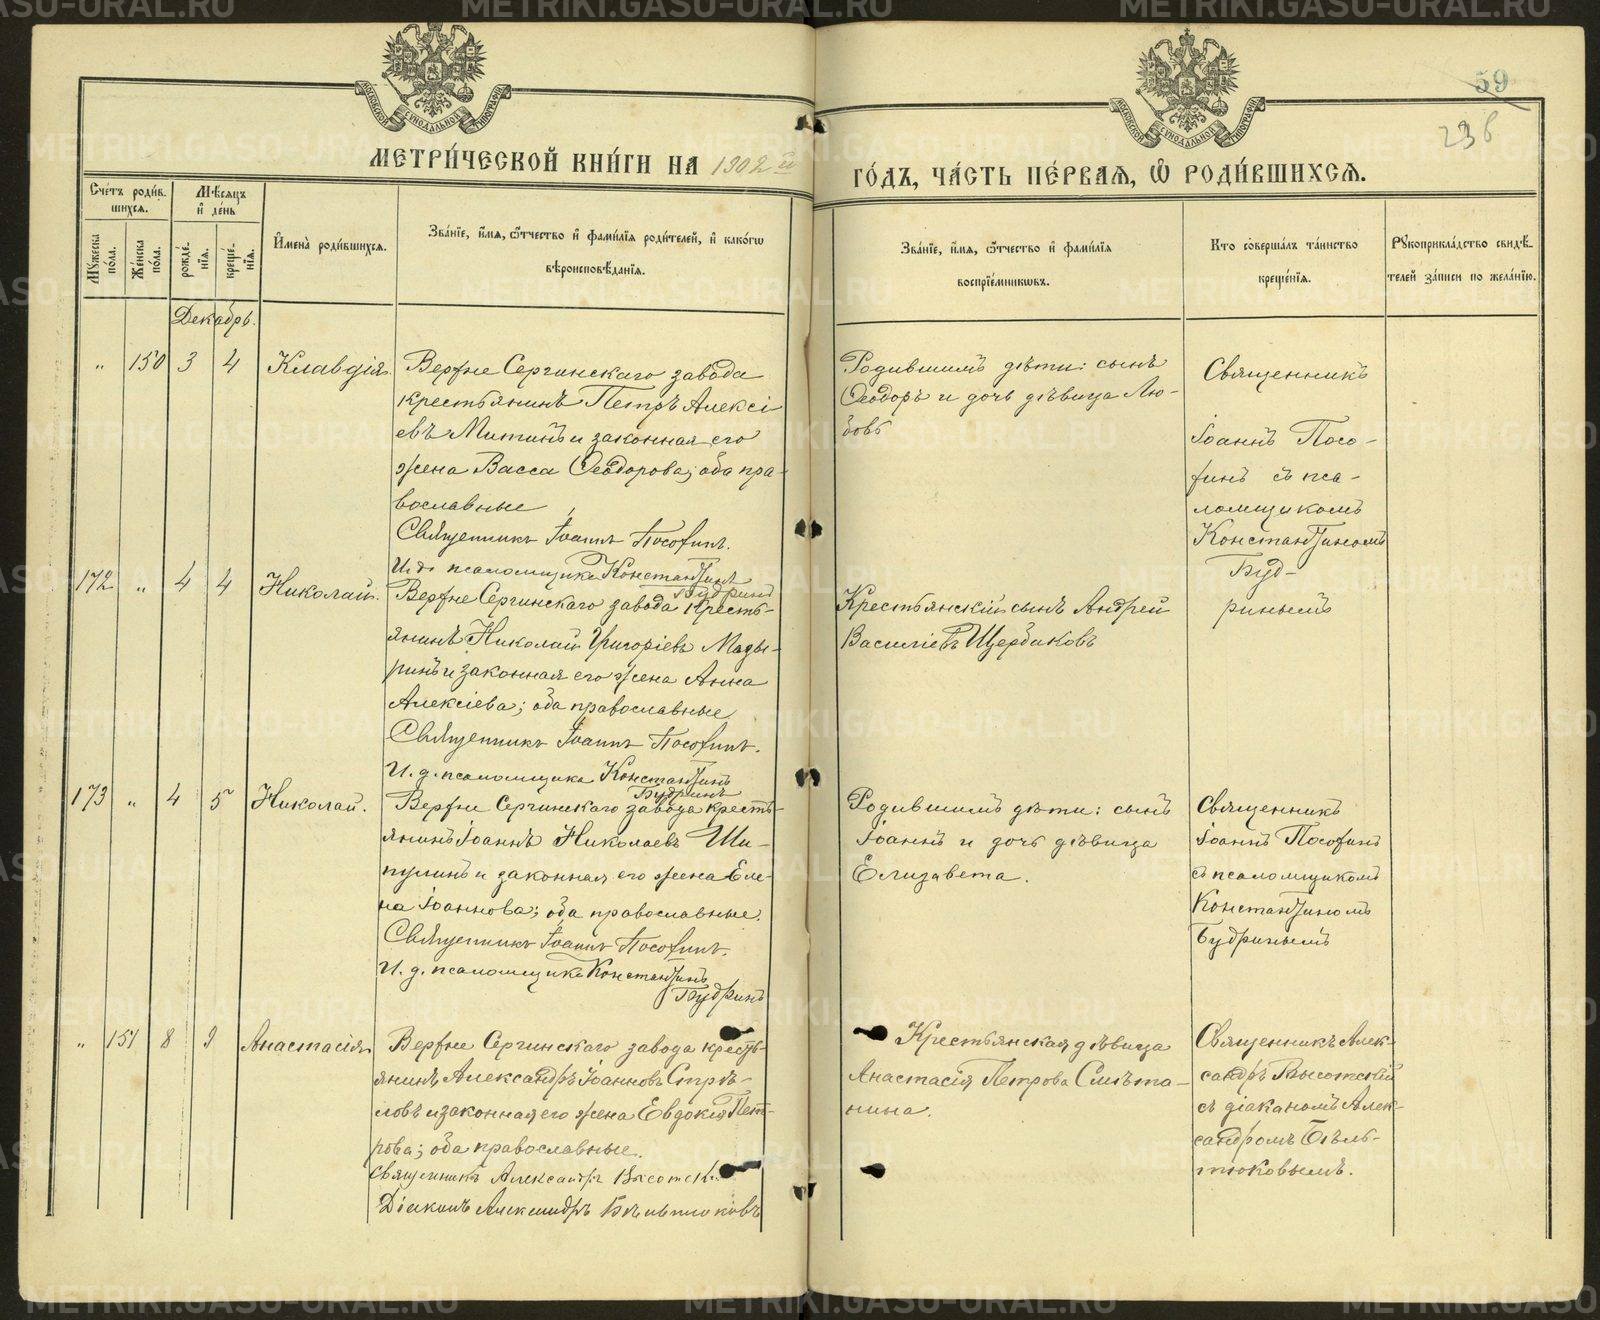 METRIKI.GASO-URAL.RU
59
236
МОСКОВСКОЙ СѴНОДАЛЬНОЙ ТИПОГРАФІИ
МОСКОВСКОЙ СѴНОДАЛЬНОЙ ТИПОГРАФІИ
МЕТРИ́ЧЕСКОЙ КНИ́ГИ НА 1902 й
ГО́ДЪ, ЧА́СТЬ ПЕ́РВАѦ, Ѽ РОДИ́ВШИХСѦ.
Сче́тъ роди́в-
шихсѧ.
Мꙋ́жеска по́ла.
Же́нска по́ла.
Мѣ́сѧцъ и҆ де́нь
рожде́нїѧ.
креще́нїѧ.
И҆мена̀ роди́вшихсѧ.
Зва́нїе, и҆́мѧ, ѻ҆́тчество и҆ фами́лїѧ роди́телей, и҆ како́гѡ
вѣроисповѣ́данїѧ.
Зва́нїе, и҆́мѧ, ѻ҆́тчество и҆ фами́лїѧ
воспрїе́мникѡвъ.
Кто̀ соверша́лъ та́инство
креще́нїѧ.
Рꙋкоприкла́дство свидѣ́-
телей за́писи по жела́нїю.
Декабрь.
„ 150 3 4 Клавдія.
Верхне Сергинскаго завода
крестьянинъ Петръ Алексі
евъ Митинъ и законная его
жена Васса Ѳеодорова; оба пра-
вославные
Священникъ Іоаннъ Посохинъ.
И. д. псаломщика Константинъ
Будринъ
Родившимъ дѣти: сынъ
Ѳеодоръ и дочь дѣвица Лю-
бовь
Священникъ
Іоаннъ Посо-
хинъ съ пса-
ломщикомъ
Константиномъ
Буд-
ринымъ
172 „ 4 4 Николай.
Верхне Сергинскаго завода кресть-
янинъ Николай Григоріевъ Мазы-
ринъ и законная его жена Анна
Алексіева; оба православные
Священникъ Іоаннъ Посохинъ.
И. д. псаломщика Константинъ
Будринъ
Крестьянскій сынъ Андрей
Василіевъ Щербаковъ
173 „ 4 5 Николай.
Верхне Сергинскаго завода кресть-
янинъ Іоаннъ Николаевъ Ши-
пулинъ и законная его жена Еле-
на Іоаннова; оба православные.
Священникъ Іоаннъ Посохинъ.
И. д. псаломщика Константинъ
Будринъ
Родившимъ дѣти: сынъ
Іоаннъ и дочь дѣвица
Елизавета.
Священникъ
Іоаннъ Посохинъ
съ псаломщикомъ
Константиномъ
Будринымъ
„ 151 8 9 Анастасія
Верхне Сергинскаго завода кресть-
янинъ Александръ Іоанновъ Стрѣ-
ловъ и законная его жена Евдокія Пет-
рова; оба православные.
Священникъ Александръ Высотскій
Діаконъ Александръ Бѣльтюковъ
Крестьянская дѣвица
Анастасія Петрова Смѣта-
нина.
Священникъ Алек-
сандръ Высотскій
съ діакономъ Алек-
сандромъ Бѣль-
тюковымъ.